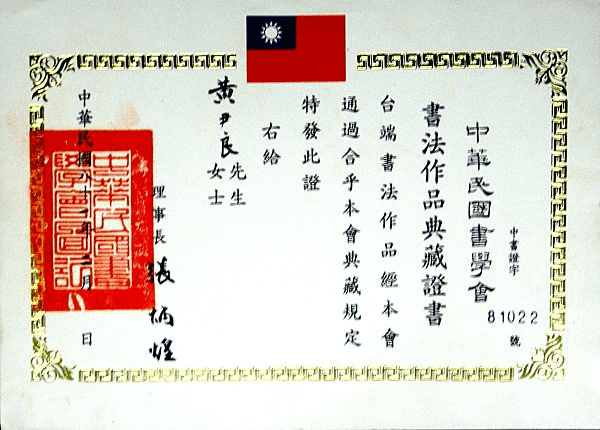 中華民國書學會
書法作品典藏證書
中書證字
81022
號
台端書法作品經本會
通過合乎本會典藏規定
特發此證
右給
黃尹良
先生
女士
理事長 張炳煌
中華民國八十一年二月 日